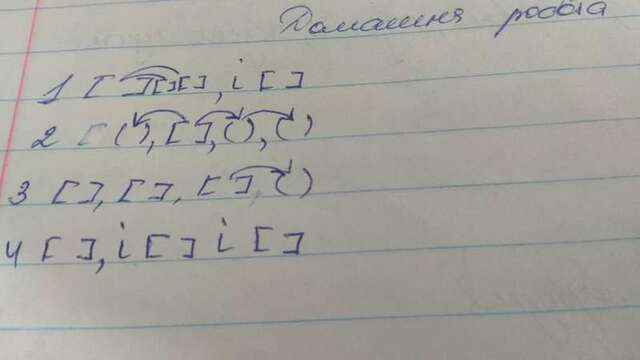 Домашня робота
1 [ ][ ][ ], і [ ]
2 ( ), [ ], ( ), ( )
3 [ ], [ ], [ ], ( )
4 [ ], і [ ] і [ ]